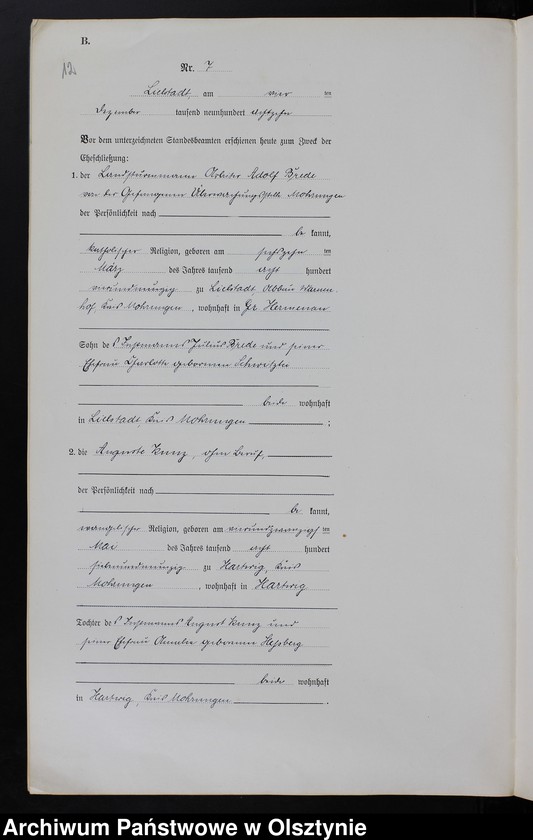 B.
12.
Nr. 7
Liebstadt, am vier ten
Dezember tausend neunhundert achtzehn
Vor dem unterzeichneten Standesbeamten erschienen heute zum Zweck der
Eheschließung:
1. der Landsturmmann Arbeiter Adolf Brede
von der Gefangenen Überwachungsstelle Mohrungen
der Persönlichkeit nach
be kannt,
katholischer Religion, geboren am sechszehn ten
März des Jahres tausend acht hundert
vierundneunzig zu Liebstadt, Abbau
hof, Kreis Mohrungen, wohnhaft in Gr Hermenau
Sohn des Instmanns Julius Brede und seiner
Ehefrau Charlotte geborenen
beide wohnhaft
in Liebstadt, Kreis Mohrungen ;
2. die Auguste Kunz, ohne Beruf,
der Persönlichkeit nach
be kannt,
evangelischer Religion, geboren am vierundzwanzigs ten
Mai des Jahres tausend acht hundert
siebenundneunzig zu Hartwig, Kreis
Mohrungen , wohnhaft in Hartwig
Tochter des Instmanns August Kunz und
seiner Ehefrau Amalie geborenen
beide wohnhaft
in Hartwig, Kreis Mohrungen .
Archiwum Państwowe w Olsztynie